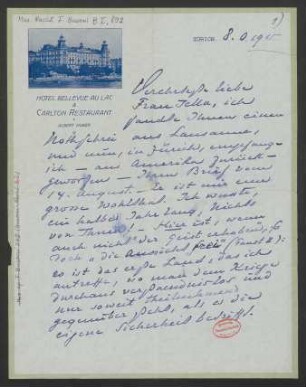 Mus. Nachl. F. Busoni B I, 892
1)
ZÜRICH 8. O. 1915
HOTEL BELLEVUE AU LAC
&
CARLTON RESTAURANT
Verehrteste liebe
Frau Jella, ich
sandte Ihnen einen
aus Lausanne,
und nun, in Zürich,
ich — aus Amerika zurück-
geworfen — Ihren Brief vom
14. August. Es ist mir eine
grosse Wohlthat. Ich wusste,
ein halbes Jahr lang, Nichts
von Ihnen! — Hier ist, wenn
auch nicht "der Geist erhaben, so
doch "die Aussicht frei" (Faust 2):
es ist das erste Land, das ich
antreffe, wo man dem Kriege
durchaus verständnislos und
nur soweit theilnehmend
gegenüber steht, als es die
eigene Sicherheit betrifft.